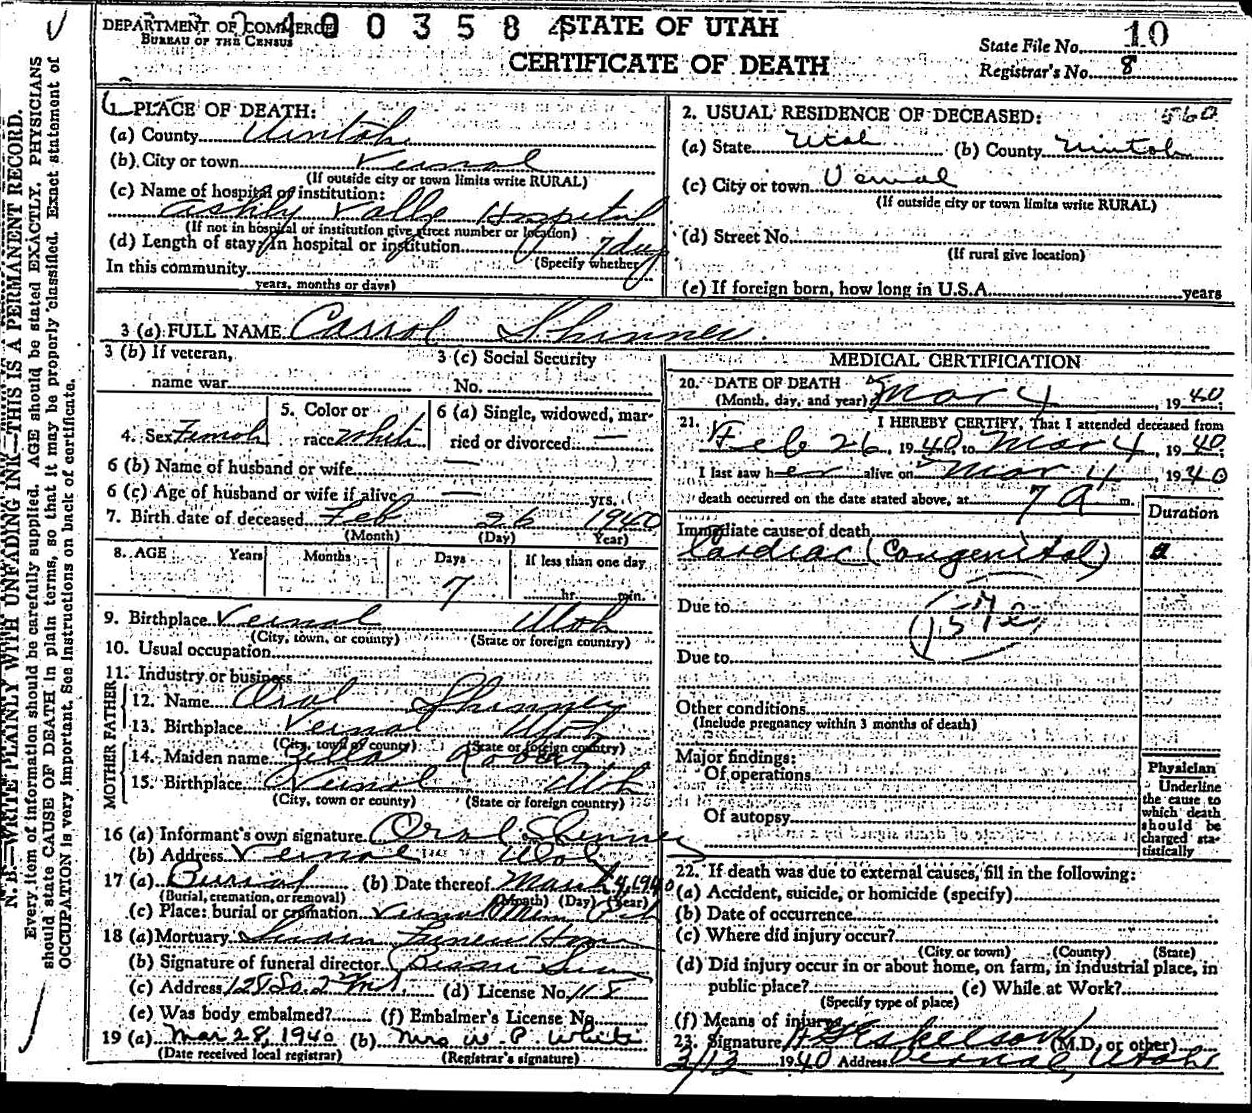 DEPARTMENT OF COMMERCE
BUREAU OF THE CENSUS
400358
STATE OF UTAH
CERTIFICATE OF DEATH
State File No. 10
Registrar's No. 8
N. B.—WRITE PLAINLY WITH UNFADING INK—THIS IS A PERMANENT RECORD.
Every item of information should be carefully supplied. AGE should be stated EXACTLY. PHYSICIANS
should state CAUSE OF DEATH in plain terms, so that it may be properly classified. Exact statement of
OCCUPATION is very important. See instructions on back of certificate.
1. PLACE OF DEATH:
(a) County Uintah
(b) City or town Vernal
(If outside city or town limits write RURAL)
(c) Name of hospital or institution:
Ashly Vally Hospital
(If not in hospital or institution give street number or location)
(d) Length of stay: In hospital or institution 7 days
(Specify whether
In this community
years, months or days)
2. USUAL RESIDENCE OF DECEASED: 560
(a) State Utah (b) County Uintah
(c) City or town Vernal
(If outside city or town limits write RURAL)
(d) Street No.
(If rural give location)
(e) If foreign born, how long in U.S.A. years
3 (a) FULL NAME Carrol Shinner
3 (b) If veteran,
name war
3 (c) Social Security
No.
4. Sex Female
5. Color or
race White
6 (a) Single, widowed, mar-
ried or divorced —
6 (b) Name of husband or wife —
6 (c) Age of husband or wife if alive — yrs.
7. Birth date of deceased Feb 26 1940
(Month) (Day) (Year)
8. AGE Years Months Days If less than one day
7 hr. min.
9. Birthplace Vernal Utah
(City, town, or county) (State or foreign country)
10. Usual occupation
11. Industry or business
FATHER
12. Name Oral Shinner
13. Birthplace Vernal Utah
(City, town or county) (State or foreign country)
MOTHER
14. Maiden name Zella
15. Birthplace Vernal Utah
(City, town or county) (State or foreign country)
16 (a) Informant's own signature Oral Shinner
(b) Address Vernal Utah
17 (a) Burial (b) Date thereof March 4, 1940
(Burial, cremation, or removal) (Month) (Day) (Year)
(c) Place: burial or cremation Vernal Mem
18 (a) Mortuary
(b) Signature of funeral director
(c) Address 128 So. 2 (d) License No. 118
(e) Was body embalmed? (f) Embalmer's License No.
19 (a) Mar 28, 1940 (b) Mrs W. P. White
(Date received local registrar) (Registrar's signature)
MEDICAL CERTIFICATION
20. DATE OF DEATH
(Month, day, and year) Mar 4 1940
21. I HEREBY CERTIFY, That I attended deceased from
Feb 26, 1940, to Mar 4, 1940.
I last saw her alive on Mar 4 1940
death occurred on the date stated above, at 7 A m.
Duration
Immediate cause of death
Cardiac (Congenital)
157e
Due to
Due to
Other conditions
(Include pregnancy within 3 months of death)
Major findings:
Of operations
Of autopsy
Physician
Underline
the cause to
which death
should be
charged sta-
tistically
22. If death was due to external causes, fill in the following:
(a) Accident, suicide, or homicide (specify)
(b) Date of occurrence
(c) Where did injury occur?
(City or town) (County) (State)
(d) Did injury occur in or about home, on farm, in industrial place, in
public place? (e) While at Work?
(Specify type of place)
(f) Means of injury
23. Signature (M.D. or other)
3/12 1940 Address Vernal, Utah